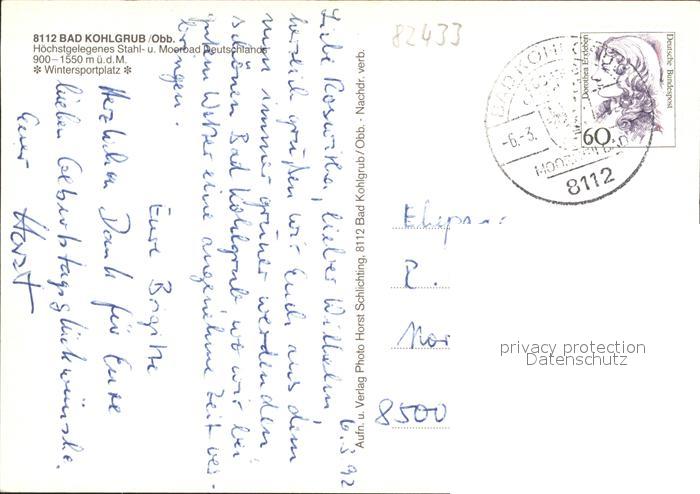 8112 BAD KOHLGRUB/Obb.
Höchstgelegenes Stahl- u. Moorbad Deutschlands
900–1550 m ü.d.M.
✻ Wintersportplatz ✻
6.3.92
Liebe Roswitha, lieber Wilhelm,
herzlich grüßen wir Euch aus dem
nun immer grüner werdenden,
schönen Bad Kohlgrub, wo wir bei
gutem Wetter eine angenehme Zeit ver-
bringen.
Eure Brigitte
Herzlichen Dank für Eure
lieben Geburtstagsglückwünsche.
Euer Horst
Aufn. u. Verlag Photo Horst Schlichting, 8112 Bad Kohlgrub/Obb. - Nachdr. verb.
82433
BAD KOHLG
-6.3.
MOORHEILBAD
8112
Dorothea Erxleben
Deutsche Bundespost
60
Ehepaar
8500
privacy protection
Datenschutz